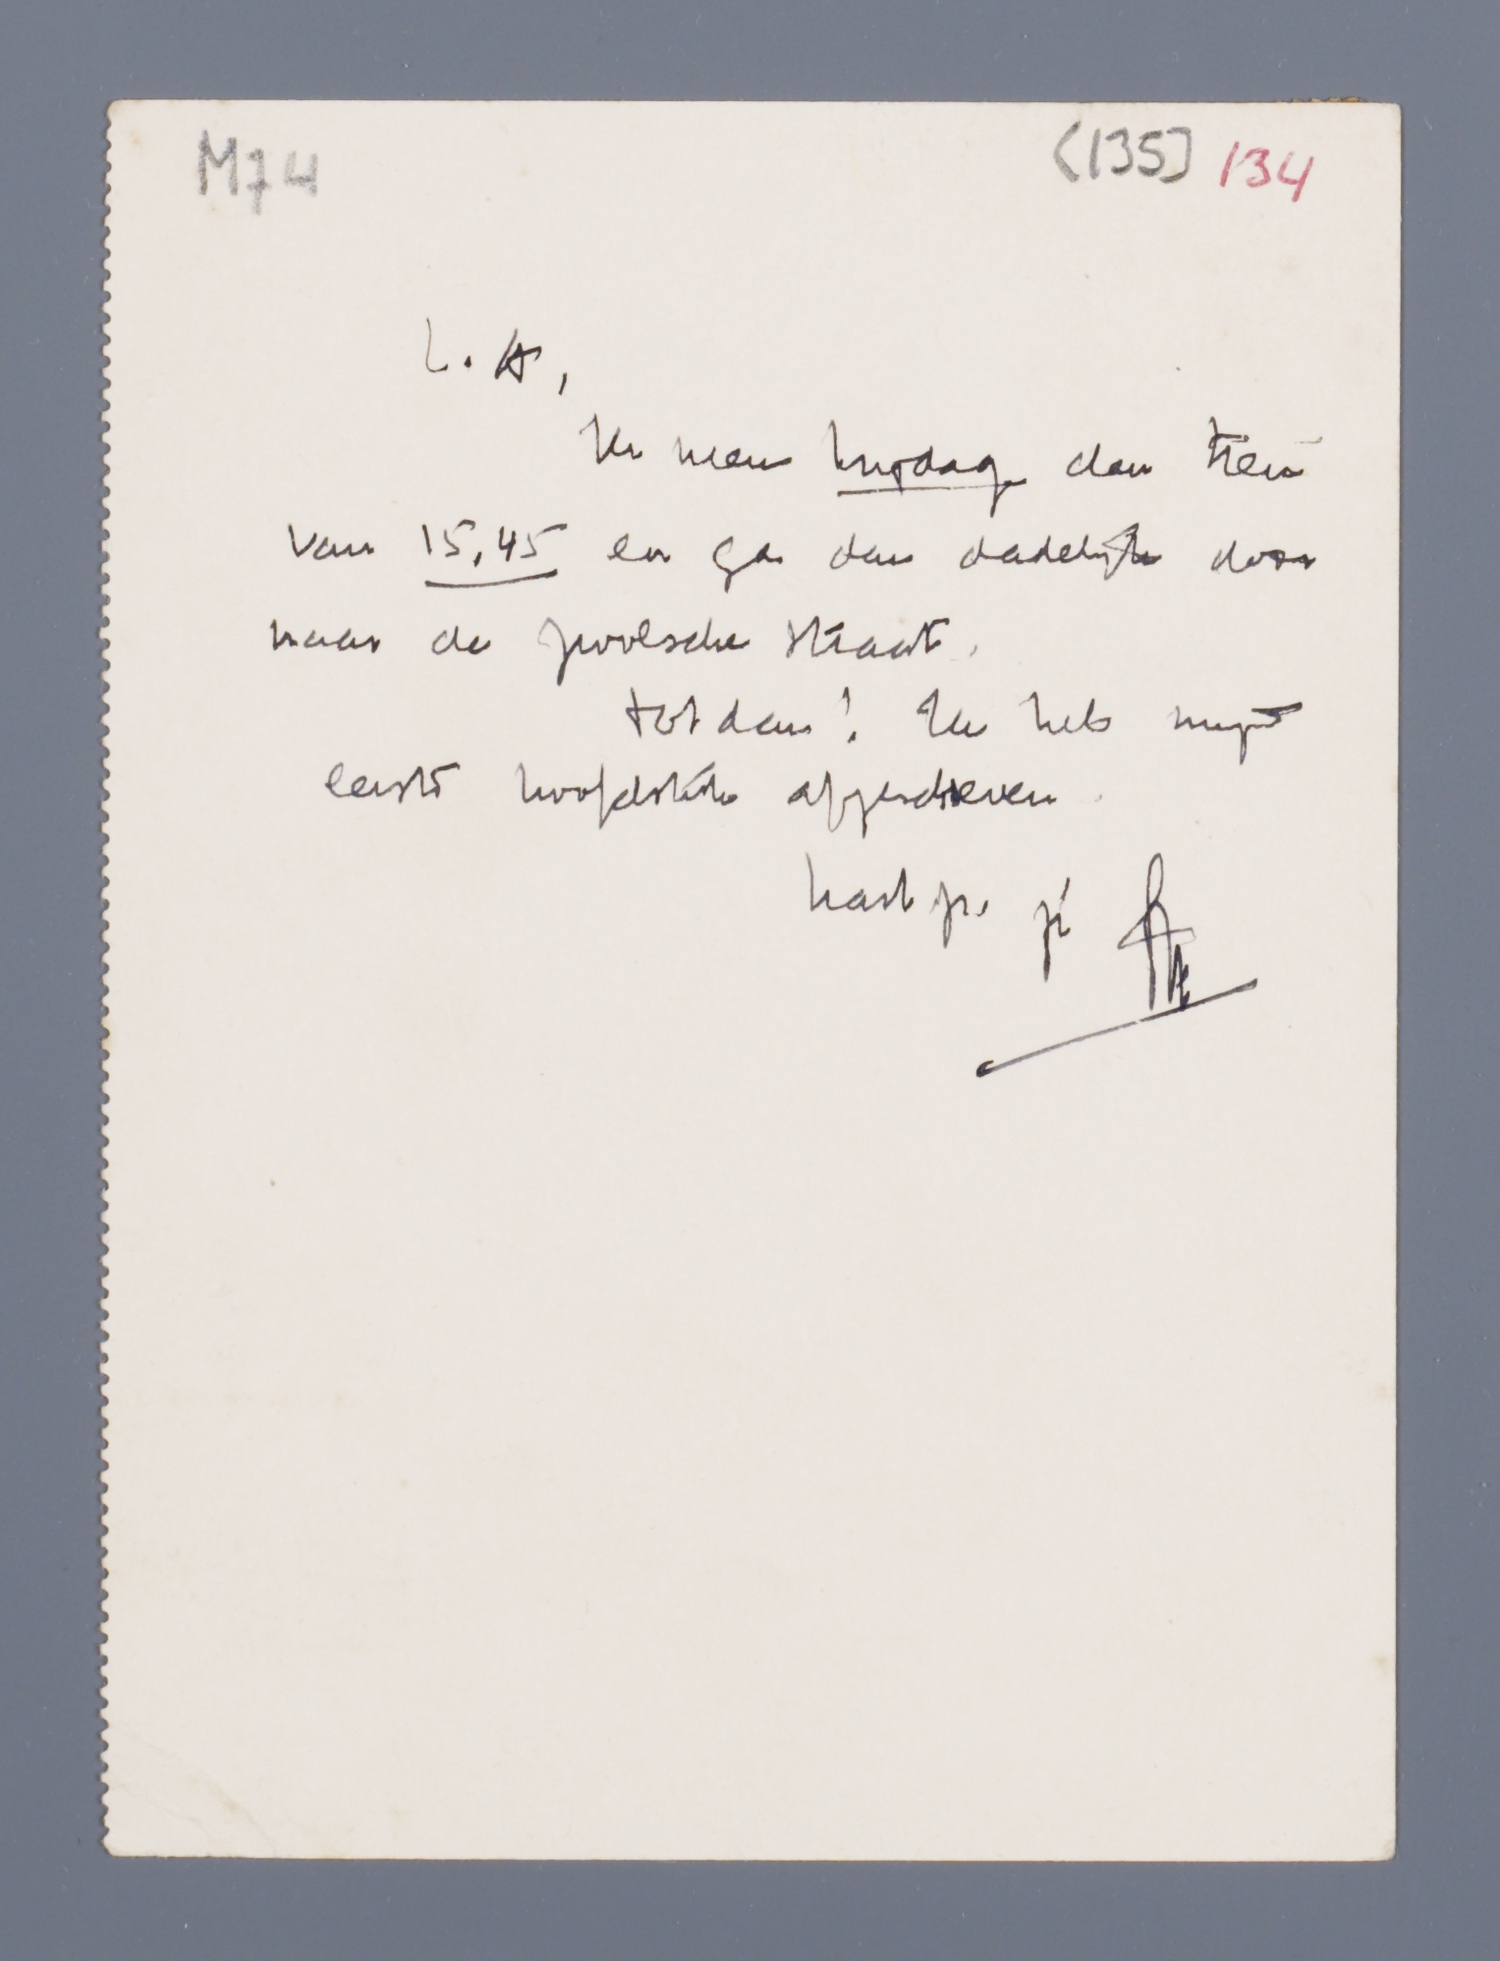 M74 (135) 134
L. A,
Ik neem vrijdag den trein
van 15,45 en ga dan dadelijk door
naar de Zwolsche straat.
tot dan! Ik heb mijn
eerste hoofdstuk afgeschreven.
hart. gr. je